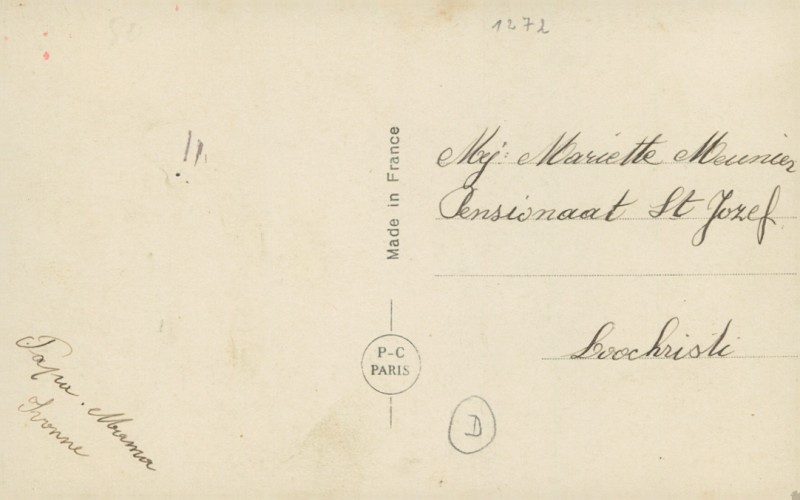 1272
Made in France
Mej: Mariette Meunier
Pensionaat St Jozef
Loochristi
P-C
PARIS
D
Papa. Mama
Ivonne